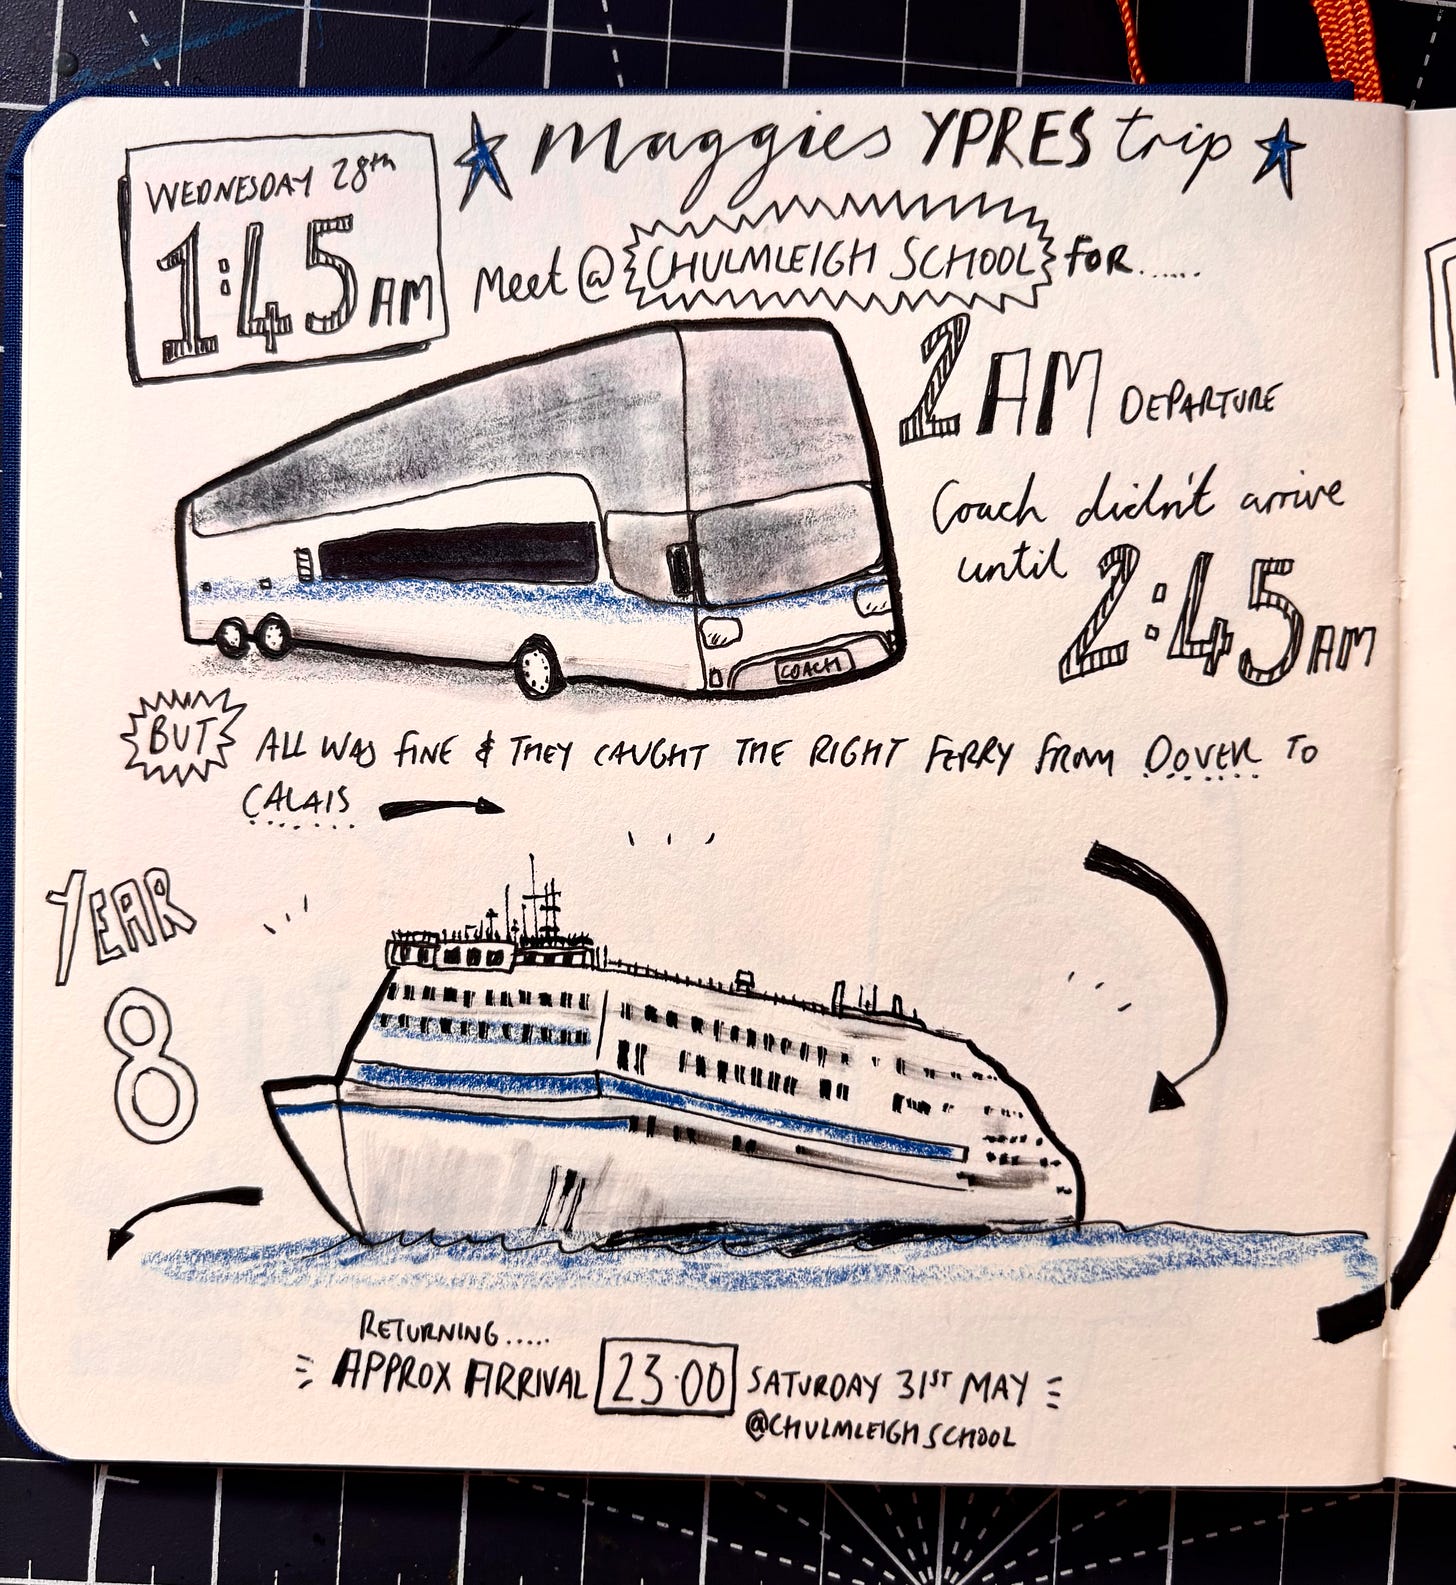 Maggies YPRES trip
WEDNESDAY 28th
1:45 AM
Meet @ CHULMLEIGH SCHOOL FOR......
2AM DEPARTURE
Coach didn't arrive
until 2:45AM
COACH
BUT ALL WAS FINE & THEY CAUGHT THE RIGHT FERRY FROM DOVER TO
CALAIS
YEAR
8
RETURNING.....
APPROX ARRIVAL 23.00 SATURDAY 31ST MAY
@CHULMLEIGH SCHOOL